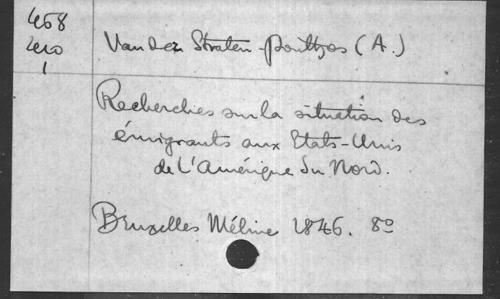 458
Van der Straten-Ponthoz (A.)
1
Recherches sur la situation des
émigrants aux Etats-Unis
de L'Amérique du Nord.
Bruxelles Méline 1846. 8º